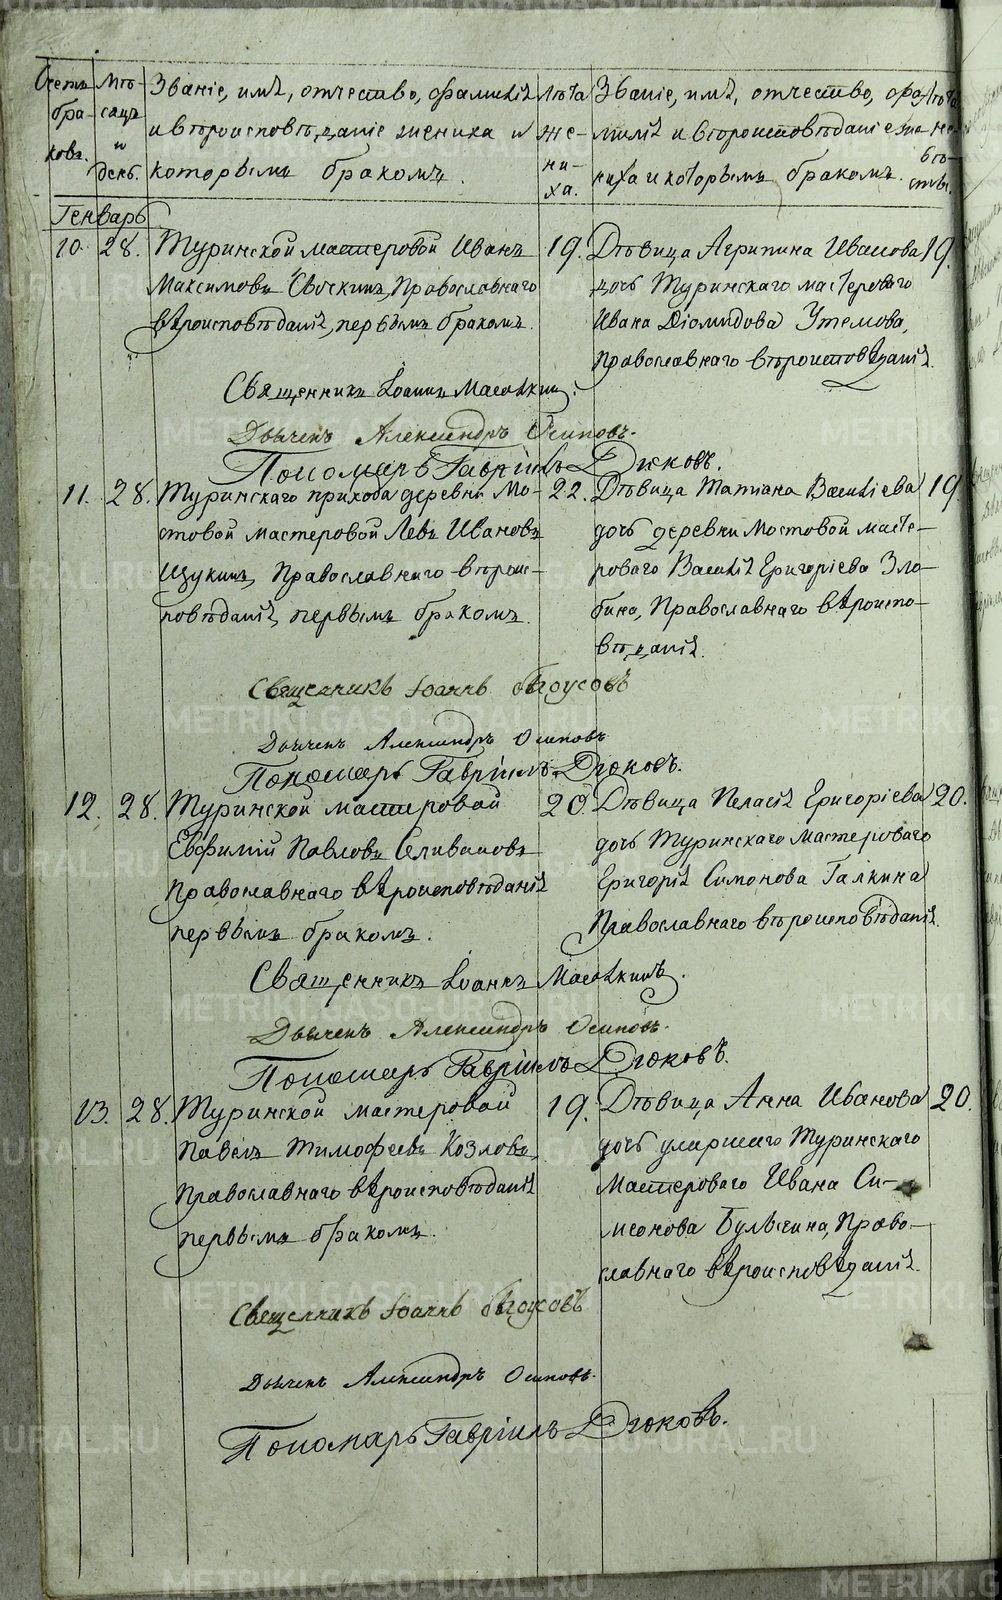 Счетъ браковъ.
Мѣсяцъ и день.
Званіе, имя, отчество, фамилія
и вѣроисповѣданіе жениха и
которымъ бракомъ.
Лѣта жениха.
Званіе, имя, отчество, фа-
милія и вѣроисповѣданіе не-
вѣста и которымъ бракомъ.
Лѣта невѣсты.
Генварь
10. 28. Туринской мастеровой Иванъ
Максимовъ Православнаго
вѣроисповѣданія, первымъ бракомъ.
19.
Дѣвица Агрипина Иванова
дочь Туринскаго мастероваго
Ивана Діомидова Утемова,
православнаго вѣроисповѣданія.
19.
Священникъ Іоаннъ
Дьяченъ Александръ Осиповъ.
Пономарь Гавріилъ Дюковъ.
11. 28. Туринскаго прихода деревни Мо-
стовой мастеровой Левъ Ивановъ
Щукинъ, Православнаго вѣроис-
повѣданія, первымъ бракомъ.
22.
Дѣвица Татіана Васильева
дочь деревни Мостовой масте-
роваго Василія Григоріева Зло-
бина, Православнаго вѣроиспо-
вѣданія.
19.
Священникъ Іоаннъ Бѣлоусовъ
Дьяченъ Александръ Осиповъ
Пономарь Гавріилъ Дюковъ.
12. 28. Туринской мастеровой
Евфимій Павловъ Селивановъ
Православнаго вѣроисповѣданія
первымъ бракомъ.
20.
Дѣвица Пелагія Григоріева
дочь Туринскаго мастероваго
Григорія Симонова Галкина
Православнаго вѣроисповѣданія.
20.
Священникъ Іоаннъ
Дьяченъ Александръ Осиповъ.
Пономарь Гавріилъ Дюковъ.
13. 28. Туринской мастеровой
Павелъ Тимофеевъ Козловъ,
православнаго вѣроисповѣданія
первымъ бракомъ.
19.
Дѣвица Анна Иванова
дочь умаршаго Туринскаго
мастероваго Ивана Си-
меонова Булыгина, Право-
славнаго вѣроисповѣданія.
20.
Священникъ Іоаннъ Бѣлоусовъ
Дьяченъ Александръ Осиповъ.
Пономарь Гавріилъ Дюковъ.
METRIKI.GASO-URAL.RU